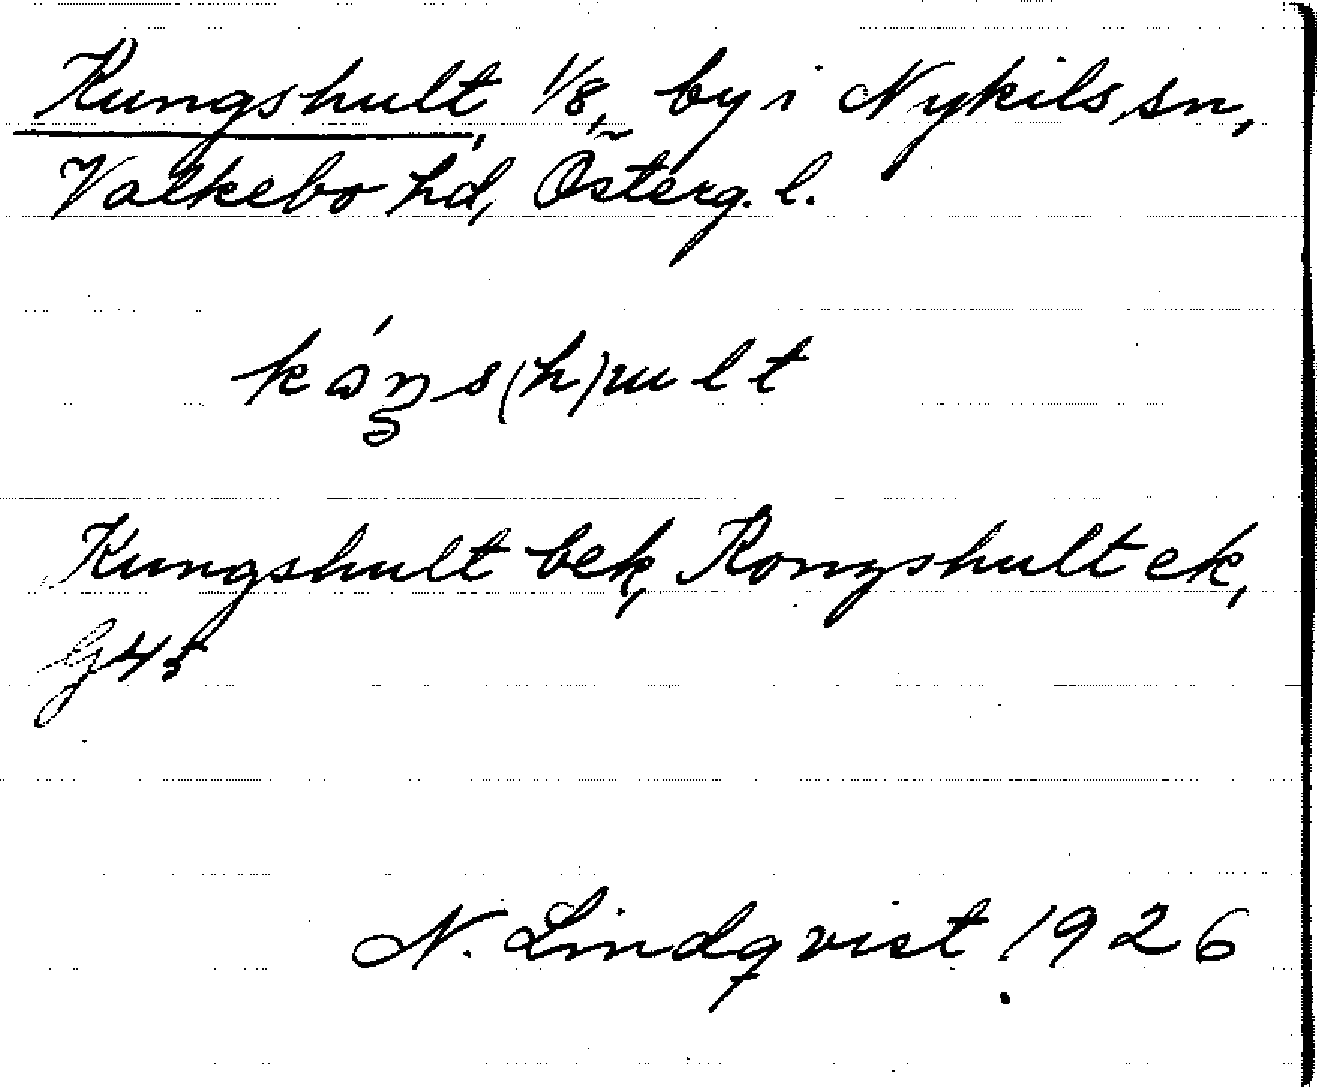 Kungshult, 1/8, by i Nykils sn,
Valkebo hd, Österg. l.
Kungshult bek, Kongshult ek,
G45
N. Lindqvist 1926